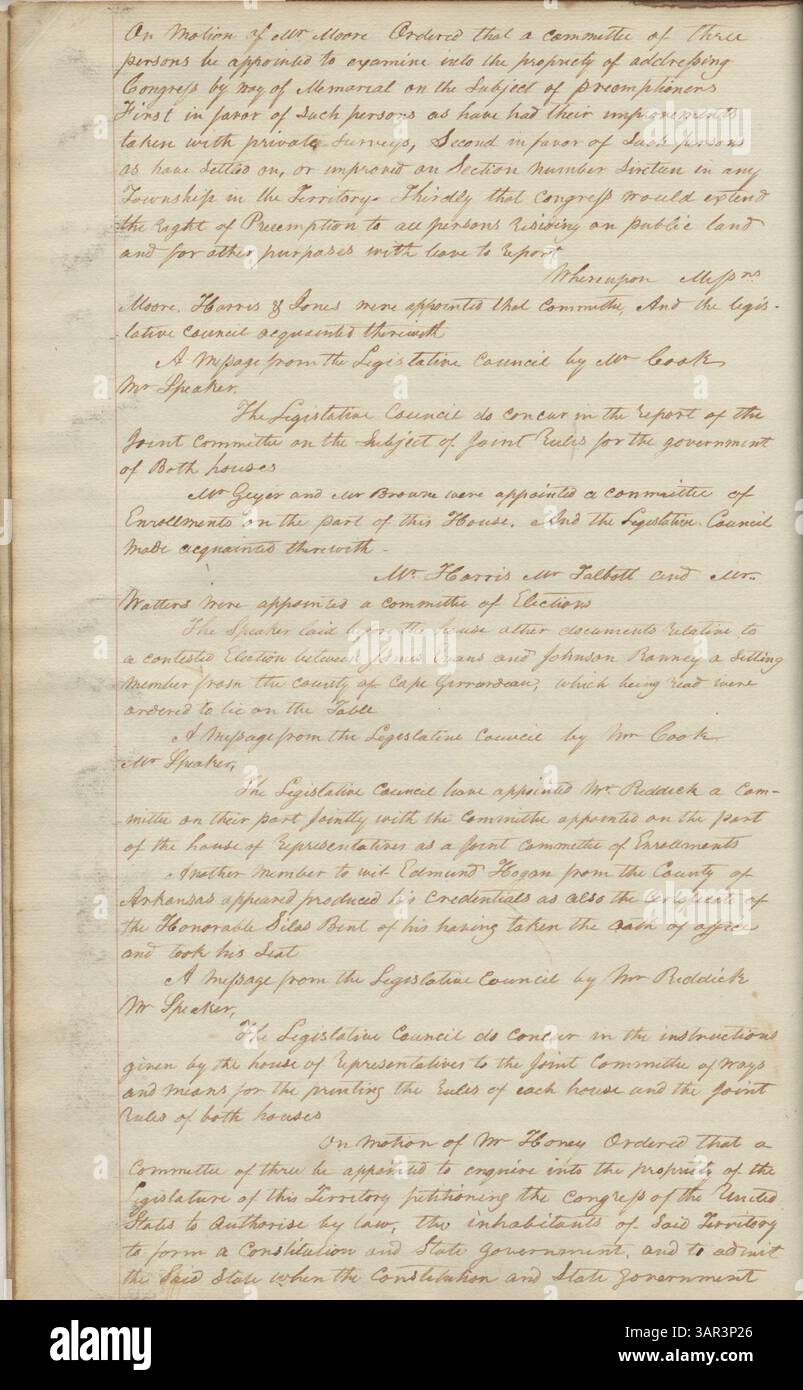 On Motion of Mr Moore Ordered that a committee of three
persons be appointed to examine into the propriety of addressing
Congress by way of Memorial on the Subject of preemptioners
First in favor of Such persons as have had their improvements
taken with private Surveys, Second in favor of Such persons
as have Settled on, or improved on Section number Sixteen in any
Township in the Territory. Thirdly that Congress would extend
the right of Preemption to all persons residing on public land
and for other purposes with leave to report
Whereupon Messrs
Moore. Harris & Jones were appointed that Committee, And the legis-
-lative Council acquainted therewith
A Message from the Legislative Council by Mr Cook
Mr Speaker.
The Legislative Council do concur in the report of the
Joint Committee on the Subject of Joint Rules for the government
of Both houses
Mr Geyer and Mr Browne were appointed a committee of
Enrollments on the part of this House. And the Legislative Council
made acquainted therewith -
Mr. Harris Mr Talbott and Mr.
Watters were appointed a committee of Elections
The Speaker laid before the house other documents relative to
a contested Election between James Evans and Johnson Ranney a Sitting
Member from the county of Cape Girrardeau, which being read were
ordered to lie on the Table
A Message from the Legislative Council by Mr Cook
Mr Speaker,
The Legislative Council have appointed Mr. Reddick a com-
-mittee on their part Jointly with the Committee appointed on the part
of the house of Representatives as a Joint Committee of Enrollments
Another Member to wit Edmund Hogan from the County of
Arkansas appeared produced his Credentials as also the Certificate of
the Honorable Silas Bent of his having taken the oath of office
and took his Seat
A Message from the Legislative Council by Mr Reddick
Mr Speaker,
The Legislative Council do concur in the instructions
given by the house of Representatives to the Joint Committee of ways
and means for the printing the Rules of each house and the Joint
Rules of both houses
On Motion of Mr Honey Ordered that a
Committee of three be appointed to enquire into the propriety of the
Legislature of this Territory petitioning the Congress of the United
States to Authorise by law, the inhabitants of Said Territory
to form a Constitution and State Government, and to admit
the Said State when the Constitution and State Government
alamy
Image ID: 3AR3P26
www.alamy.com